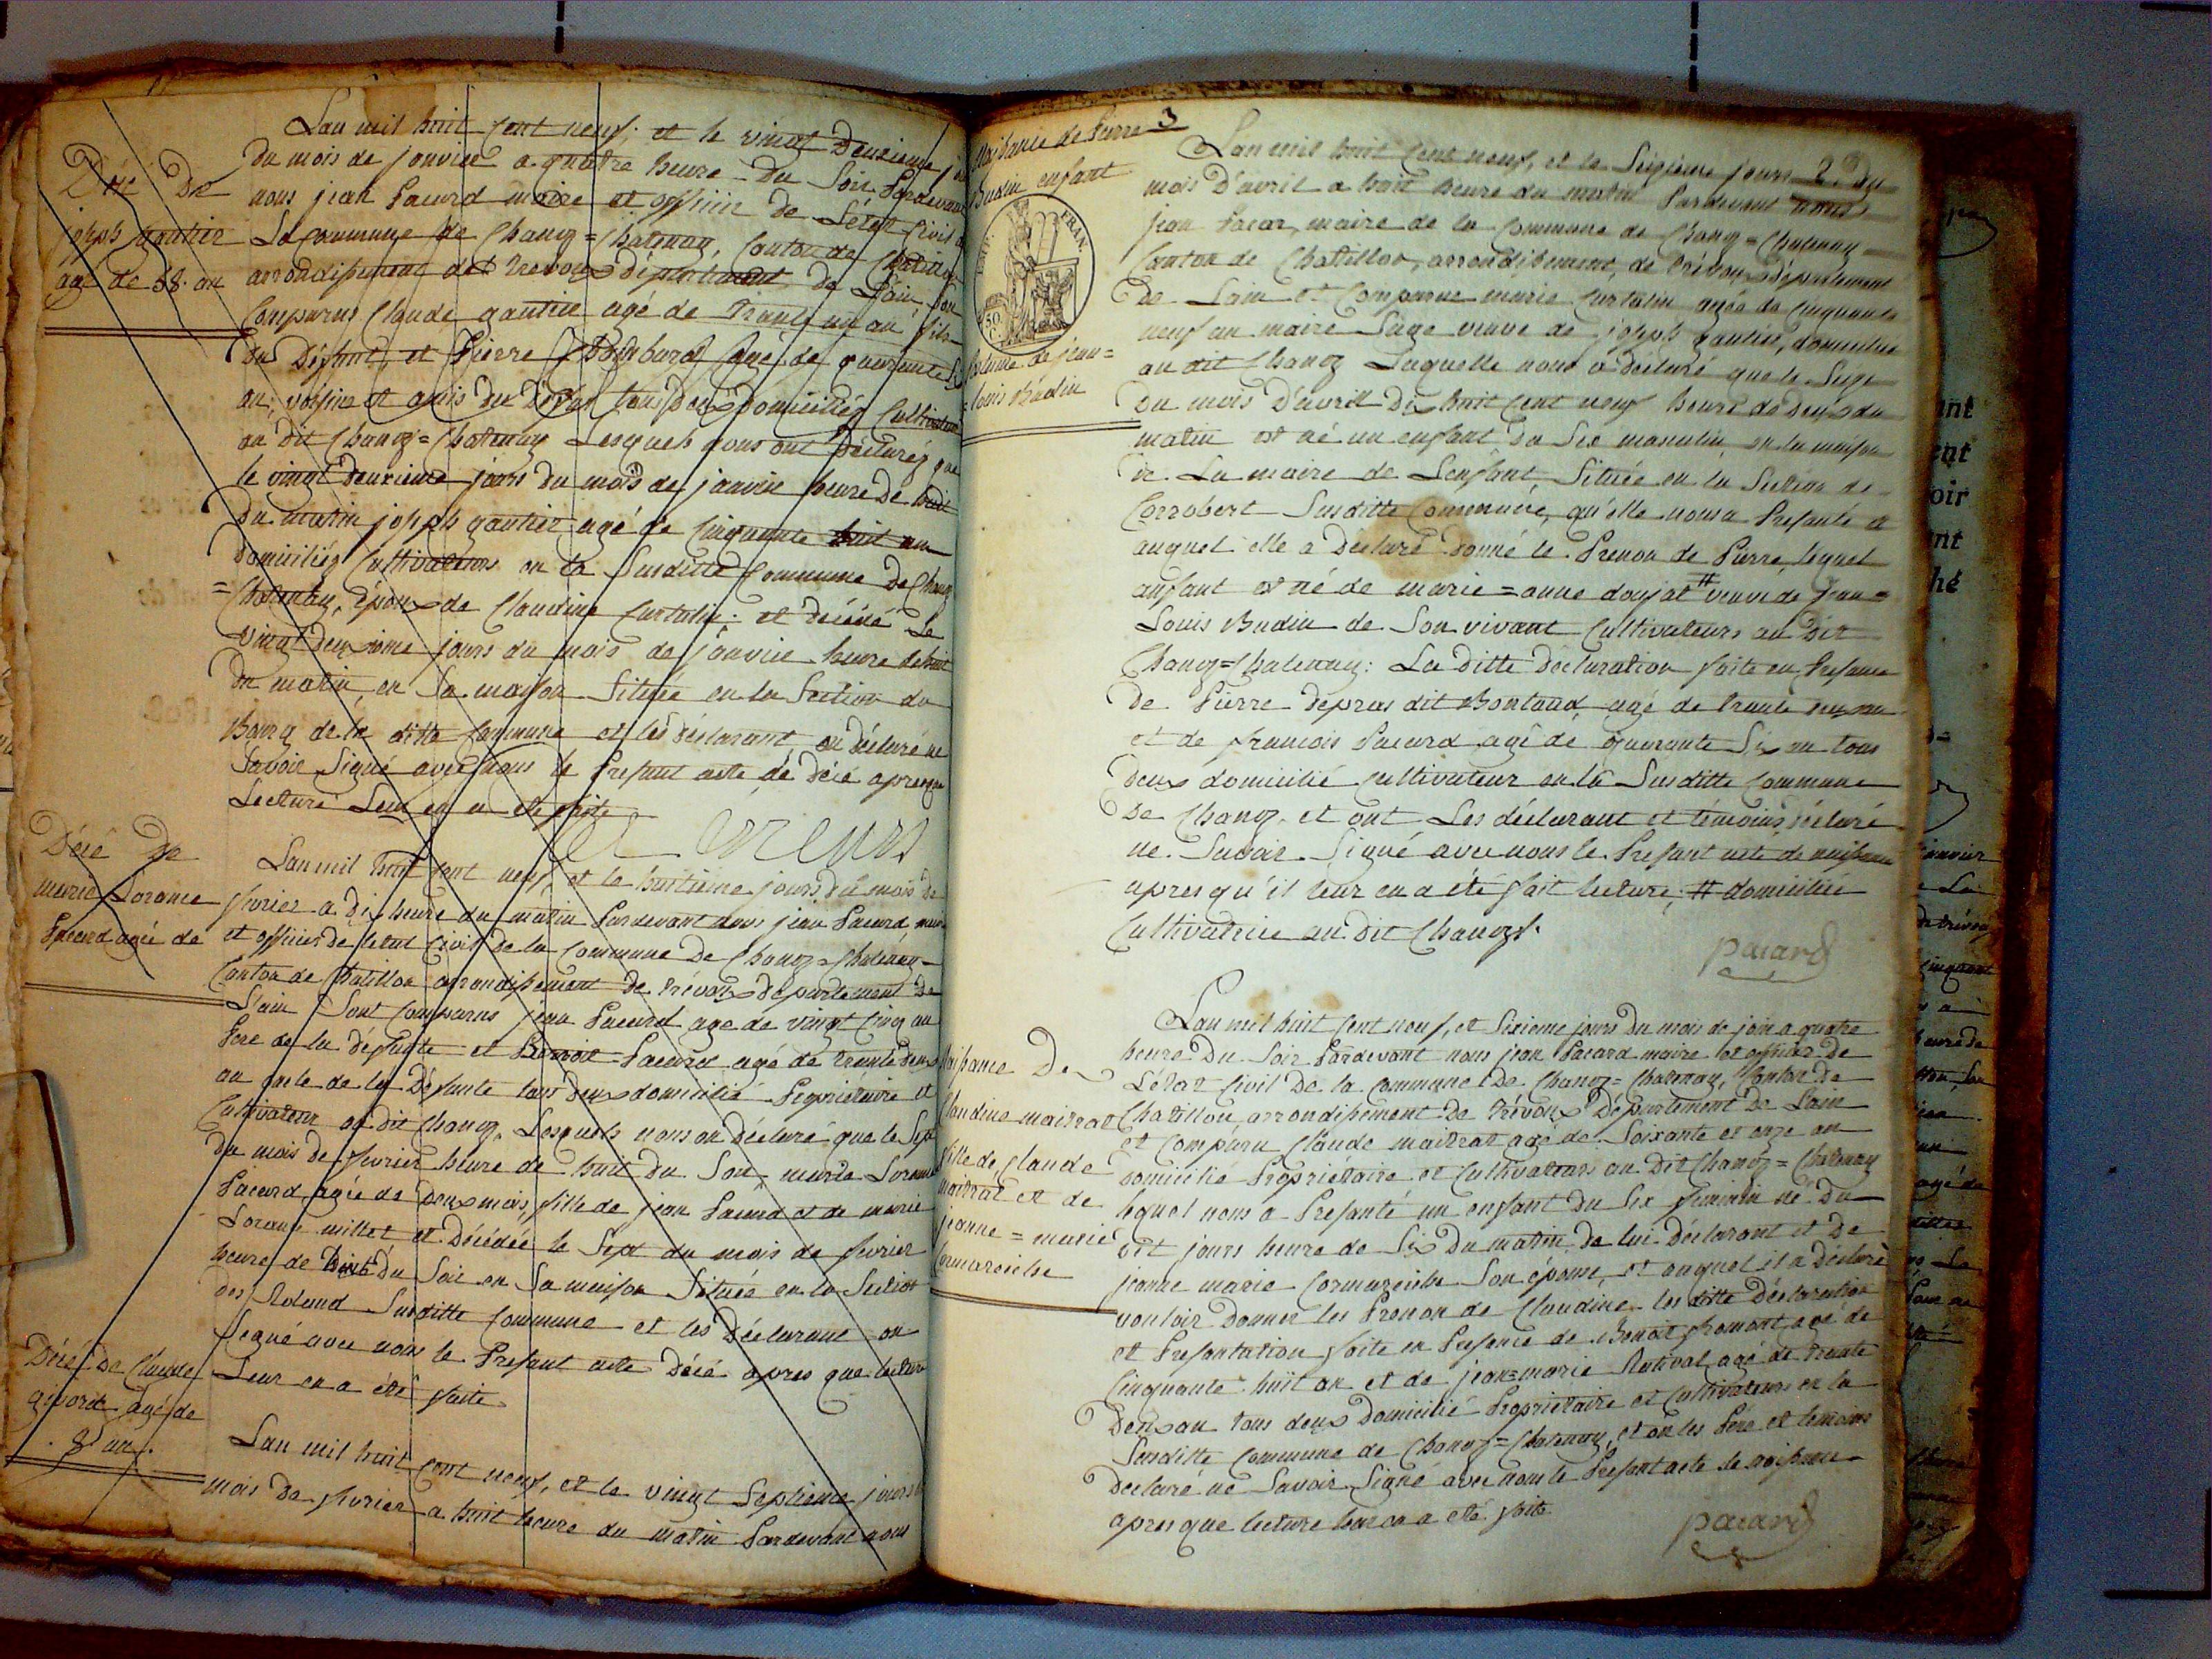 Décé De
joseph gautier
agé de 58. an
Lan mil huit Cent neuf. et le vingt Deuxieme
du mois de janvier a quatre heure du Soir Pardevant
nous jean Pacard maire et officier de Létat Civil
La Commune de Chanoz=Chatenay, Canton de Chatillon
arrondissement de Trevoux département de Lain, Son
Comparus Claude gautier agé de Trante un an fils
du Défunt, et Pierre agé de quarante
an, voisins et amis du Défunt tous Deux Domiciliés Cultivateurs
au dit Chanoz=Chatenay Lesquels nous ont Déclarés que
le vingt Deuxieme jours du mois de janvier heure De huit
Du matin joseph gautier agé de Cinquante huit an
Domiciliés Cultivateurs en la Susditte Commune De Chanoz
=Chatenay, Epoux de Claudine Curtalin. et décédé Le
vingt Deuxieme jours du mois de janvier heure de huit
Du matin, en Sa maison Située en la Section du
Bourg de la ditte Commune et les déclarant on déclaré ne
Savoir Signé avec nous le Présant acte de décé apres que
Lecture Leur en a été faite
Décé De
marie Lorance
Pacard agée de
Lan mil huit Cent neuf, et le huitieme jours du mois De
fevrier a Dix heure du matin Pardevant nous jean Pacard, maire
et officier de letat Civil de la Commune De Chanoz=Chatenay
Canton de Chatillon arrondissement de Trévoux département De
Lain Sont Comparus jean Pacard agé de vingt Cinq an
Pere de la défunte et Benoit Pacard agé de trante deux
an oncle de la Défunte tous deux domicilié Proprietaire et
Cultivateur au dit Chanoz. Lesquels nous on Déclaré que le Sept
du mois de fevrier heure de huit du Soir, marie Lorance
Pacard agée de Deux mois, fille de jean Pacard et de marie
Lorance millet et Décédée le Sept du mois de fevrier
heure de huit du Soir en Sa maison Située en la Section
des Susditte Commune et les Déclarant on
Signé avec nous le Présant acte Décé apres que lecture
Leur en a été faite
Décé De Claude
agé de
8 an.
Lan mil huit cent neuf, et le vingt Septieme jours
mois De fevrier a huit heure du matin Pardevant nous
Naissance de Pierre 3
Budin enfant
EMP. FRAN.
50
de jean=
=louis Budin
Lan mil huit Cent neuf, et le Seizieme jours 2. Du
mois D'avril a huit heure du matin Pardevant nous
jean Pacar, maire de la Commune de Chanoz=Chatenay
Canton de Chatillon, arrondissement, de Trévoux département
De Lain et Comparue marie Curtalin agée de Cinquante
neuf an maire Sage veuve de joseph gautier, domiciliée
au dit Chanoz Laquelle nous a déclaré que le Seize
Du mois D'avrill Dix huit Cent neuf heure de deux du
matin est né un enfant du Sex masculin, en la maison
De La maire de Lenfant Située en la Section de
Corrobert Susditte Commune, qu'elle nous a Présanté et
auquel elle a Déclaré donné le Prenon de Pierre, lequel
anfant est né de marie=anne doujat # veuve de jean=
Louis Budin de Son vivant Cultivateurs au dit
Chanoz=Chatenay: La ditte déclaration faite en Présance
De Pierre depras dit Bontand agé de Trante deux an
et de francois Pacard agé de quarante Six an tous
Deux domicilié Cultivateur en la Susditte Commune
De Chanoz. et ont Les déclarant et témoins, déclaré
ne Savoir Signé avec nous le Présant acte de naissance
apres qu'il leur en a été fait lecture; # domiciliée
Cultivatrice au dit Chanoz.
pacard
Naissance De
Claudine maitrat
fille de Claude
maitrat et de
jeanne=marie
Cormareiche
Lan mil huit Cent neuf, et Sixieme jours Du mois de join a quatre
heure Du Soir Pardevant nous jean Pacard maire et officier De
L'état Civil De la Commune De Chanoz=Chatenay, Canton De
Chatillon, arrondissement De Trévoux Département De Lain
et Comparu Claude maitrat agé de Soixante et onze an
domicilié Propriétaire et Cultivateurs au Dit Chanoz=Chatenay
lequel nous a Présanté un enfant du Sex feminin né Du
dit jours heure de Six Du matin, De lui Déclarant et De
jeanne marie Cormareiche Son épouse, et auquel il a Déclaré
vouloir Donner les Prenon de Claudine. les ditte Déclaration
et Présantation faite en Présence de Benoit fromont agé de
Cinquante huit an et de jean=marie agé de trante
Deux an tous deux Domicilié Propriétaire et Cultivateurs en la
Susditte Commune de Chanoz=Chatenay, et on les Pere et témoins
Déclaré ne Savoir Signé avec nous le Présant acte de naissance
apres que lecture leur en a été faite
pacard